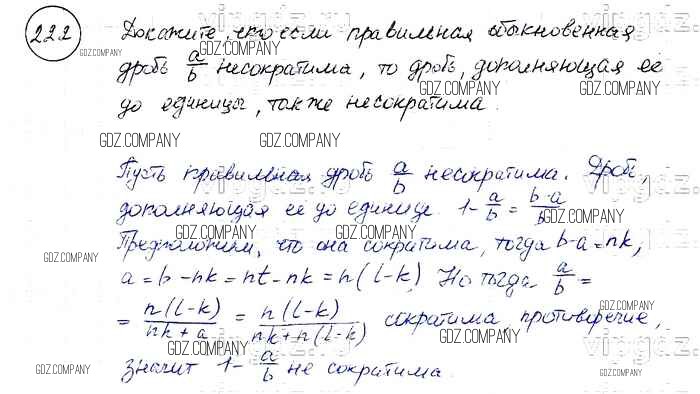 222 Докажите, что если правильная обыкновенная
дробь a/b несократима, то дробь, дополняющая её
до единицы, также несократима.
Пусть правильная дробь a/b несократима. Дробь,
дополняющая ее до единице 1 - a/b = b-a/b
Предположим, что она сократима, тогда b-a=nk,
a = b - nk = nt - nk = n(l-k) Но тогда a/b =
= n(l-k)/nk+a = n(l-k)/nk+n(l-k) сократима, противоречие,
значит 1 - a/b не сократима.
GDZ.COMPANY
GDZ.COMPANY
GDZ.COMPANY
GDZ.COMPANY
GDZ.COMPANY
GDZ.COMPANY
GDZ.COMPANY
GDZ.COMPANY
GDZ.COMPANY
GDZ.COMPANY
GDZ.COMPANY
GDZ.COMPANY
GDZ.COMPANY
GDZ.COMPANY